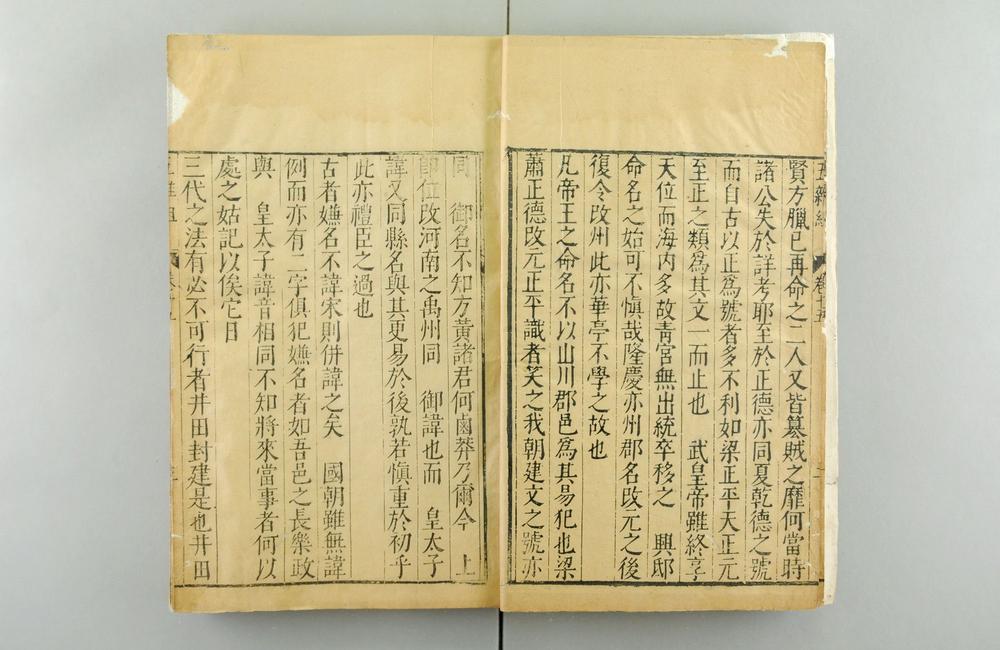 五雜組 卷十五
賢方臘已再命之二人又皆篡賊之靡何當時
諸公失於詳考耶至於正德亦同夏乾德之號
而自古以正爲號者多不利如梁正平天正元
至正之類爲其文一而止也　武皇帝雖終享
天位而海内多故青宮無出統卒移之　興邸
命名之始可不慎哉隆慶亦州郡名改元之後
復令改州此亦華亭不學之故也
凡帝王之命名不以山川郡邑爲其易犯也梁
蕭正德改元正平識者笑之我朝建文之號亦
同　御名不知方黃諸君何鹵莽乃爾今　上
卽位改河南之禹州同　御諱也而　皇太子
諱又同縣名與其更易於後孰若慎重於初乎
此亦禮臣之過也
古者嫌名不諱宋則併諱之矣　國朝雖無諱
例而亦有二字俱犯嫌名者如吾邑之長樂政
與　皇太子諱音相同不知將來當事者何以
處之姑記以俟它日
三代之法有必不可行者井田封建是也井田